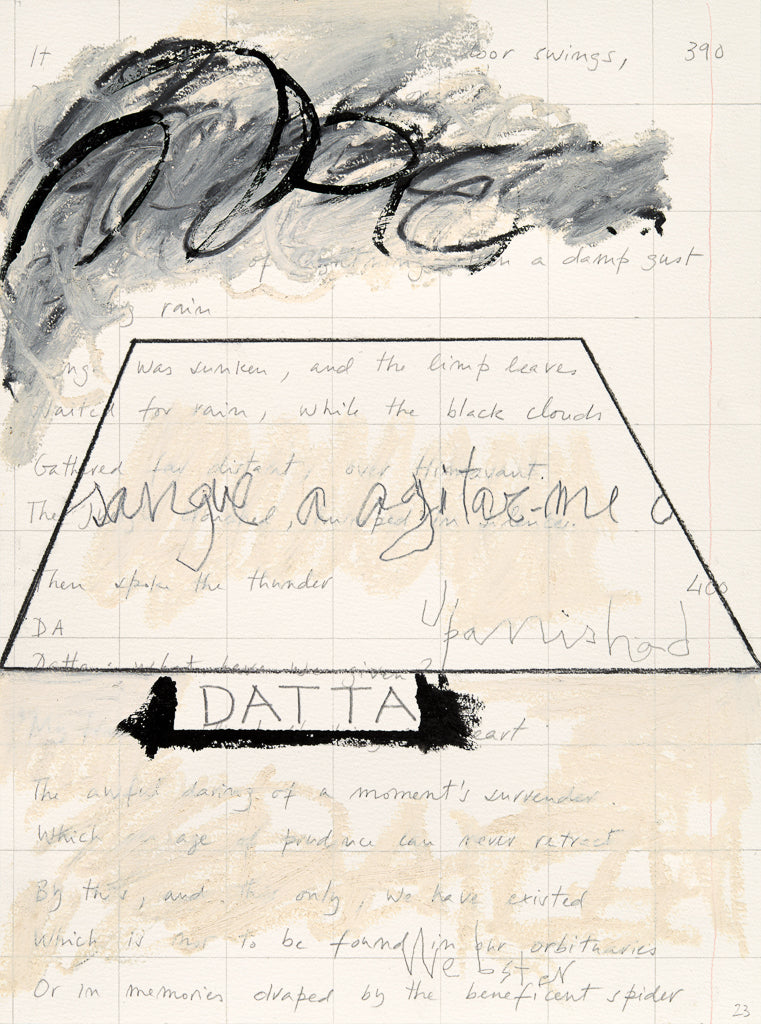 It door swings, 390
of a damp gust
rain
was sunken, and the limp leaves
waited for rain, while the black clouds
Gathered far distant, over Himavant.
sangue a agitar-me o
The in silence.
Then spoke the thunder 400
DA
Upanishad
Datta: what have we given?
DATTA
heart
The awful daring of a moment's surrender.
Which an age of prudence can never retract
By this, and this only, we have existed
Which is not to be found in our orbituaries
Webster
Or in memories draped by the beneficent spider
23